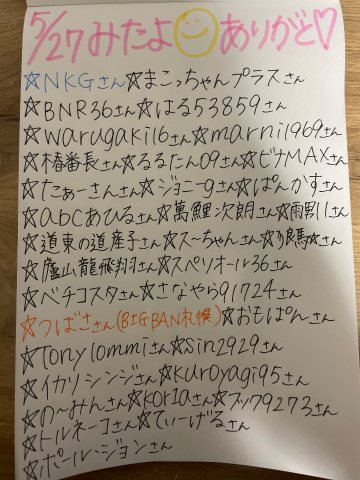 5/27みたよ ありがと♡
☆NKGさん☆まこっちゃんプラスさん
☆BNR36さん☆はる53859さん
☆warugaki16さん☆marni1969さん
☆椿番長さん☆るるたん09さん☆ビナMAXさん
☆たぁーさんさん☆ジョニーgさん☆ぱんかすさん
☆abcあひるさん☆萬鯉次朗さん☆雨男11さん
☆道東の道産子さん☆ス〜ちゃんさん☆り良馬☆さん
☆廬山龍飛翔さん☆スペリオール36さん
☆ベチコスタさん☆さなやら91724さん
☆つばささん(BIGBAN札幌)☆おもぱんさん
☆Tony1ommiさん☆sin2929さん
☆イカリシンジさん☆kuroyagi95さん
☆の〜みんさん☆kor1aさん☆ブッフ9273さん
☆トルネーコさん☆てぃーげるさん
☆ポール・ジョンさん